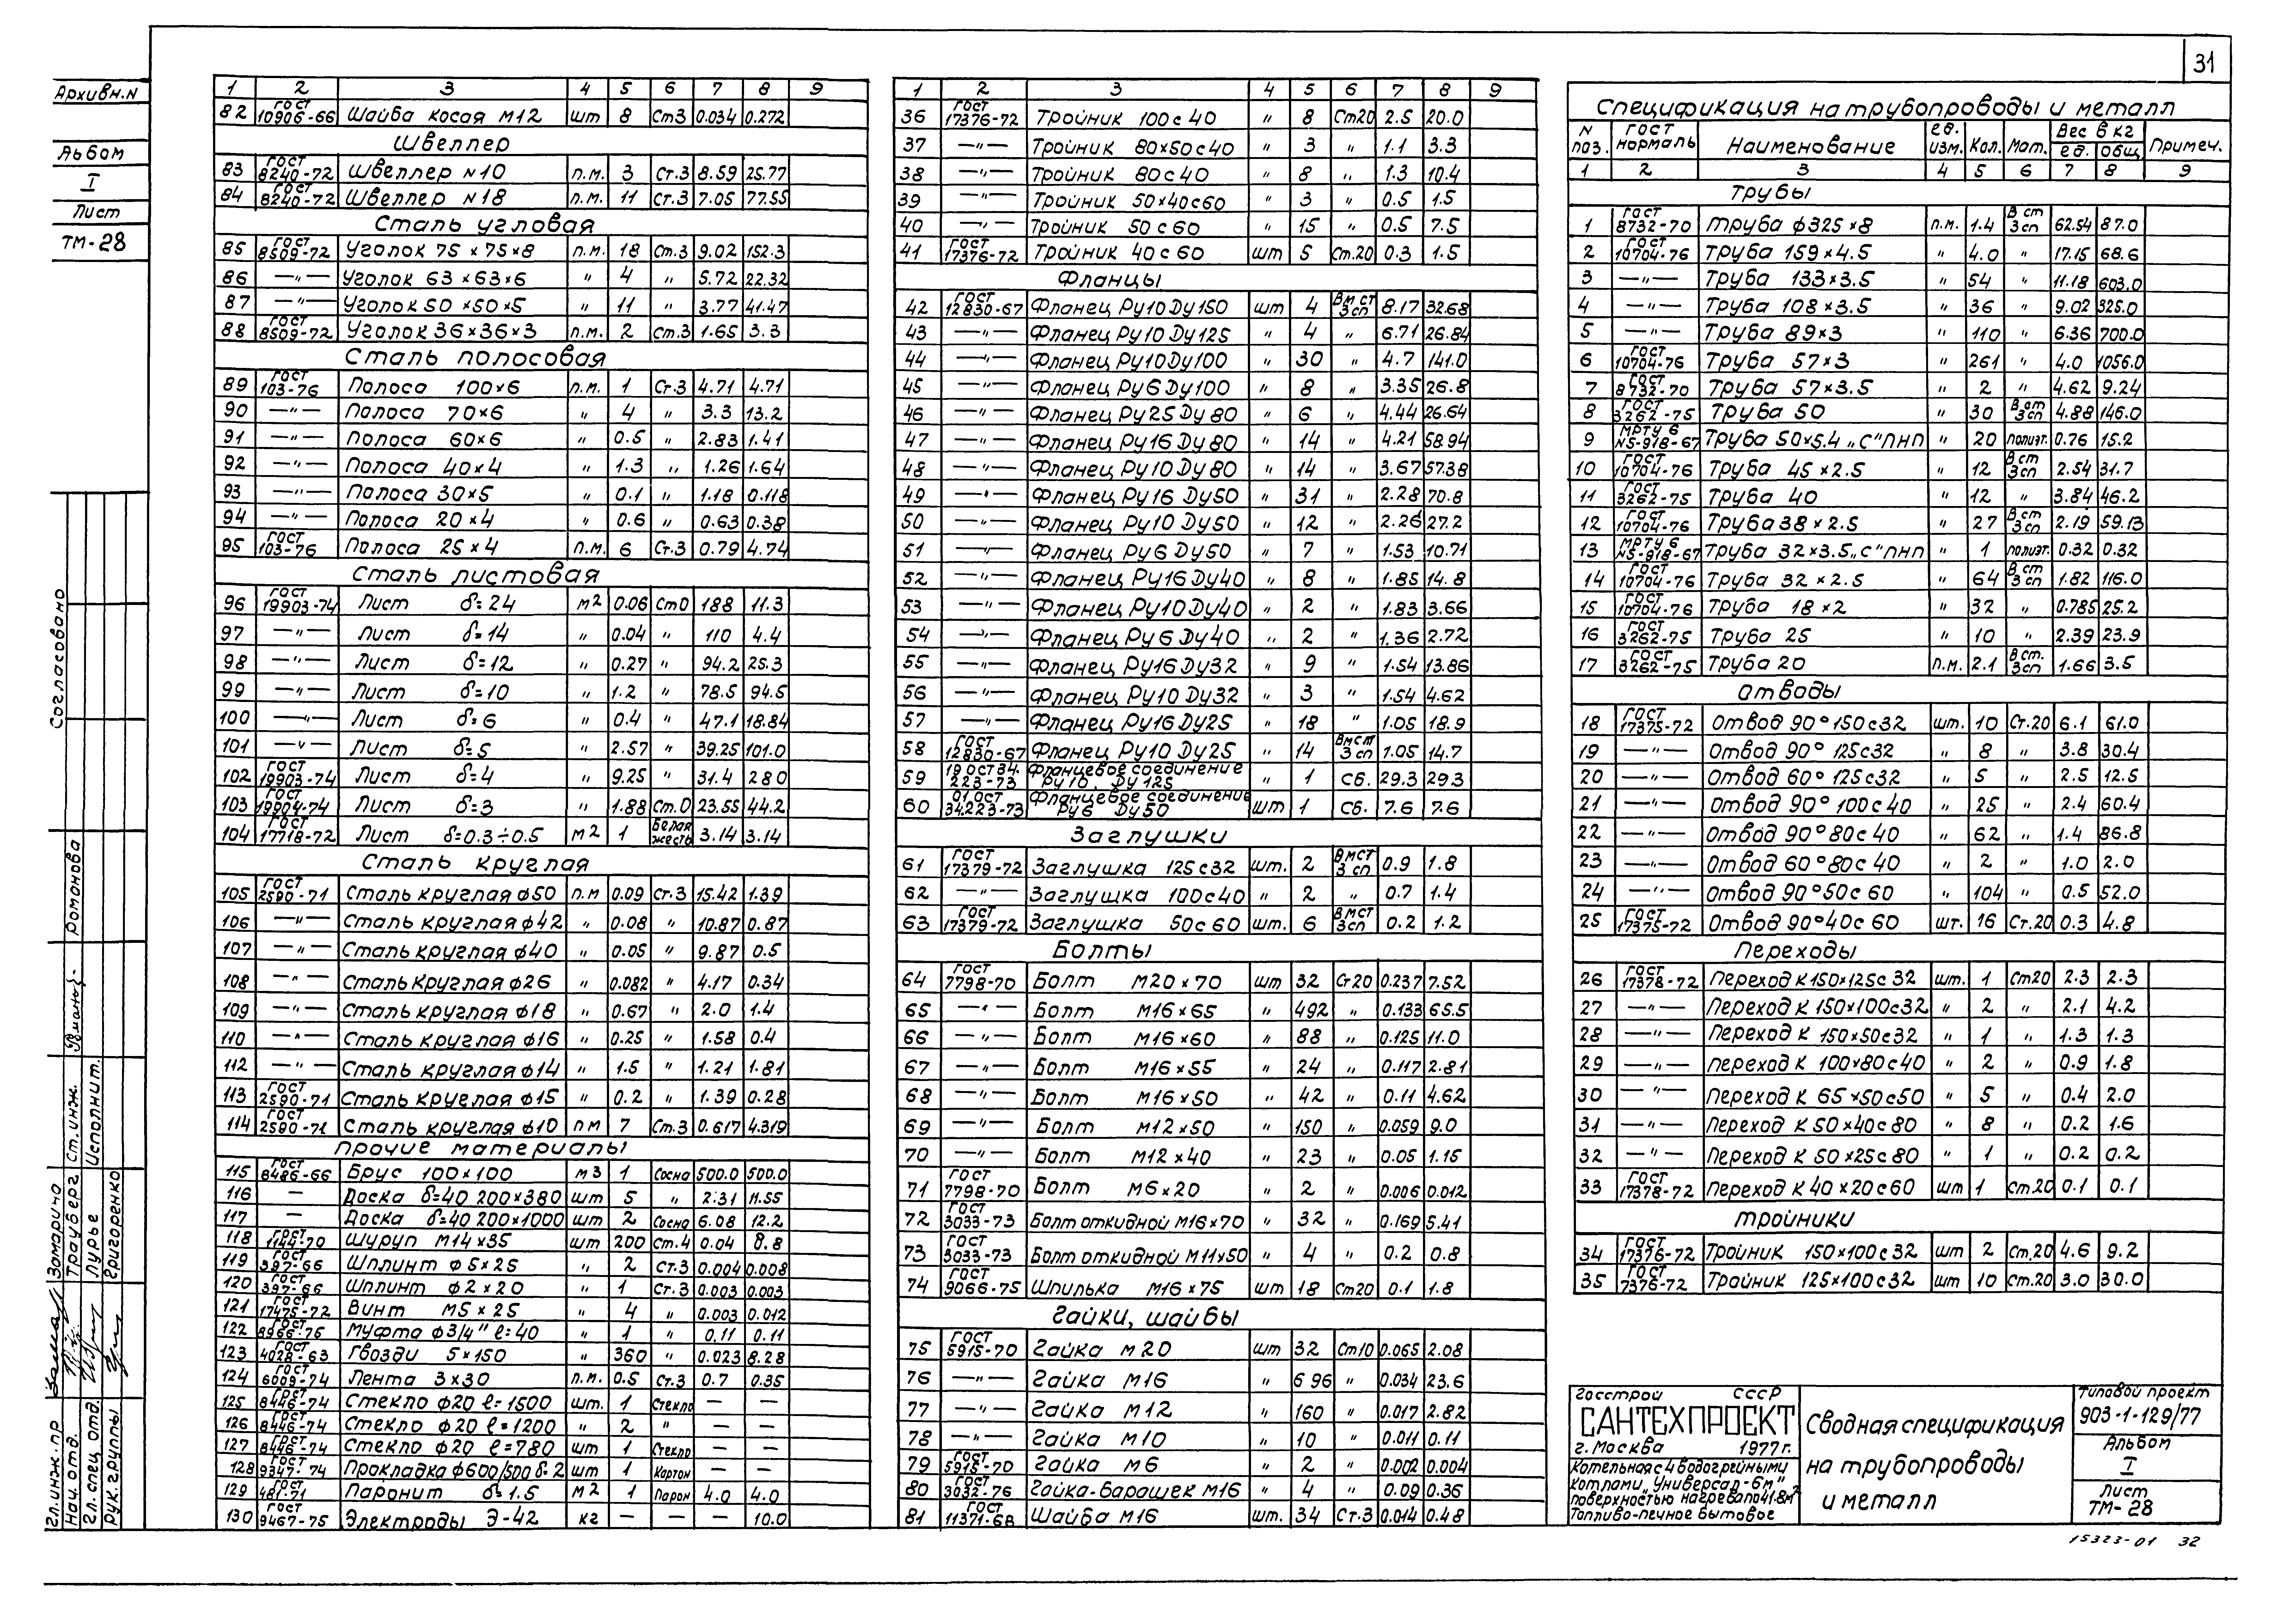 31
Архивн.N
Альбом
I
Лист
ТМ-28
Согласовано
1 2 3 4 5 6 7 8 9
82 ГОСТ 10906-66 Шайба косая М12 шт 8 Ст3 0.034 0.272
Швеллер
83 ГОСТ 8240-72 Швеллер N10 п.м. 3 Ст.3 8.59 25.77
84 ГОСТ 8240-72 Швеллер N18 п.м. 11 Ст.3 7.05 77.55
Сталь угловая
85 ГОСТ 8509-72 Уголок 75×75×8 п.м. 18 Ст.3 9.02 152.3
86 —〃— Уголок 63×63×6 〃 4 〃 5.72 22.32
87 —〃— Уголок 50×50×5 〃 11 〃 3.77 41.47
88 ГОСТ 8509-72 Уголок 36×36×3 п.м. 2 Ст.3 1.65 3.3
Сталь полосовая
89 ГОСТ 103-76 Полоса 100×6 п.м. 1 Ст.3 4.71 4.71
90 —〃— Полоса 70×6 〃 4 〃 3.3 13.2
91 —〃— Полоса 60×6 〃 0.5 〃 2.83 1.41
92 —〃— Полоса 40×4 〃 1.3 〃 1.26 1.64
93 —〃— Полоса 30×5 〃 0.1 〃 1.18 0.118
94 —〃— Полоса 20×4 〃 0.6 〃 0.63 0.38
95 ГОСТ 103-76 Полоса 25×4 п.м. 6 Ст.3 0.79 4.74
Сталь листовая
96 ГОСТ 19903-74 Лист δ=24 м2 0.06 Ст0 188 11.3
97 —〃— Лист δ=14 〃 0.04 〃 110 4.4
98 —〃— Лист δ=12 〃 0.27 〃 94.2 25.3
99 —〃— Лист δ=10 〃 1.2 〃 78.5 94.5
100 —〃— Лист δ=6 〃 0.4 〃 47.1 18.84
101 —〃— Лист δ=5 〃 2.57 〃 39.25 101.0
102 ГОСТ 19903-74 Лист δ=4 〃 9.25 〃 31.4 280
103 ГОСТ 19904-74 Лист δ=3 〃 1.88 Ст.0 23.55 44.2
104 ГОСТ 17718-72 Лист δ=0.3÷0.5 м2 1 Белая жесть 3.14 3.14
Сталь круглая
105 ГОСТ 2590-71 Сталь круглая ф50 п.м 0.09 Ст.3 15.42 1.39
106 —〃— Сталь круглая ф42 〃 0.08 〃 10.87 0.87
107 —〃— Сталь круглая ф40 〃 0.05 〃 9.87 0.5
108 —〃— Сталь круглая ф26 〃 0.082 〃 4.17 0.34
109 —〃— Сталь круглая ф18 〃 0.67 〃 2.0 1.4
110 —〃— Сталь круглая ф16 〃 0.25 〃 1.58 0.4
112 —〃— Сталь круглая ф14 〃 1.5 〃 1.21 1.81
113 ГОСТ 2590-71 Сталь круглая ф15 〃 0.2 〃 1.39 0.28
114 ГОСТ 2590-71 Сталь круглая ф10 пм 7 Ст.3 0.617 4.319
Прочие материалы
115 ГОСТ 8486-66 Брус 100×100 м3 1 Сосна 500.0 500.0
116 — Доска δ=40 200×380 шт 5 〃 2.31 11.55
117 — Доска δ=40 200×1000 шт 2 Сосна 6.08 12.2
118 ГОСТ 1144-70 Шуруп М14×35 шт 200 Ст.4 0.04 0.8
119 ГОСТ 397-66 Шплинт ф5×25 〃 2 Ст.3 0.004 0.008
120 ГОСТ 397-66 Шплинт ф2×20 〃 1 Ст.3 0.003 0.003
121 ГОСТ 17475-72 Винт М5×25 〃 4 〃 0.003 0.012
122 ГОСТ 8966-75 Муфта ф3/4" ℓ=40 〃 1 〃 0.11 0.11
123 ГОСТ 4028-63 Гвозди 5×150 〃 360 〃 0.023 8.28
124 ГОСТ 6009-74 Лента 3×30 п.м. 0.5 Ст.3 0.7 0.35
125 ГОСТ 8446-74 Стекло ф20 ℓ=1500 шт. 1 Стекло — —
126 ГОСТ 8446-74 Стекло ф20 ℓ=1200 〃 2 〃 — —
127 ГОСТ 8446-74 Стекло ф20 ℓ=780 шт 1 Стекло — —
128 ГОСТ 9347-74 Прокладка ф600/500 δ=2 шт 1 Картон — —
129 ГОСТ 481-71 Паронит δ=1.5 м2 1 Парон 4.0 4.0
130 ГОСТ 9467-75 Электроды Э-42 кг — — — 10.0
1 2 3 4 5 6 7 8 9
36 ГОСТ 17376-72 Тройник 100с40 〃 8 Ст20 2.5 20.0
37 —〃— Тройник 80×50с40 〃 3 〃 1.1 3.3
38 —〃— Тройник 80с40 〃 8 〃 1.3 10.4
39 —〃— Тройник 50×40с60 〃 3 〃 0.5 1.5
40 —〃— Тройник 50с60 〃 15 〃 0.5 7.5
41 ГОСТ 17376-72 Тройник 40с60 шт 5 Ст.20 0.3 1.5
Фланцы
42 ГОСТ 12830-67 Фланец Ру10 Ду150 шт 4 Вмст 3сп 8.17 32.68
43 —〃— Фланец Ру10 Ду125 〃 4 〃 6.71 26.84
44 —〃— Фланец Ру10 Ду100 〃 30 〃 4.7 141.0
45 —〃— Фланец Ру6 Ду100 〃 8 〃 3.35 26.8
46 —〃— Фланец Ру25 Ду80 〃 6 〃 4.44 26.64
47 —〃— Фланец Ру16 Ду80 〃 14 〃 4.21 58.94
48 —〃— Фланец Ру10 Ду80 〃 14 〃 3.67 57.38
49 —〃— Фланец Ру16 Ду50 〃 31 〃 2.28 70.8
50 —〃— Фланец Ру10 Ду50 〃 12 〃 2.26 27.2
51 —〃— Фланец Ру6 Ду50 〃 7 〃 1.53 10.71
52 —〃— Фланец Ру16 Ду40 〃 8 〃 1.85 14.8
53 —〃— Фланец Ру10 Ду40 〃 2 〃 1.83 3.66
54 —〃— Фланец Ру6 Ду40 〃 2 〃 1.36 2.72
55 —〃— Фланец Ру16 Ду32 〃 9 〃 1.54 13.86
56 —〃— Фланец Ру10 Ду32 〃 3 〃 1.54 4.62
57 —〃— Фланец Ру16 Ду25 〃 18 〃 1.05 18.9
58 ГОСТ 12830-67 Фланец Ру10 Ду25 〃 14 Вмст 3сп 1.05 14.7
59 19 ОСТ 34.223-73 Фланцевое соединение Ру10, Ду125 〃 1 Сб. 29.3 29.3
60 01 ОСТ 34.223-73 Фланцевое соединение Ру6 Ду50 шт 1 Сб. 7.6 7.6
Заглушки
61 ГОСТ 17379-72 Заглушка 125с32 шт. 2 Вмст 3сп 0.9 1.8
62 —〃— Заглушка 100с40 〃 2 〃 0.7 1.4
63 ГОСТ 17379-72 Заглушка 50с60 шт. 6 Вмст 3сп 0.2 1.2
Болты
64 ГОСТ 7798-70 Болт М20×70 шт 32 Ст20 0.237 7.52
65 —〃— Болт М16×65 〃 492 〃 0.133 65.5
66 —〃— Болт М16×60 〃 88 〃 0.125 11.0
67 —〃— Болт М16×55 〃 24 〃 0.117 2.81
68 —〃— Болт М16×50 〃 42 〃 0.11 4.62
69 —〃— Болт М12×50 〃 150 〃 0.059 9.0
70 —〃— Болт М12×40 〃 23 〃 0.05 1.15
71 ГОСТ 7798-70 Болт М6×20 〃 2 〃 0.006 0.012
72 ГОСТ 3033-73 Болт откидной М16×70 〃 32 〃 0.169 5.41
73 ГОСТ 3033-73 Болт откидной М11×50 〃 4 〃 0.2 0.8
74 ГОСТ 9066-75 Шпилька М16×75 шт 18 Ст20 0.1 1.8
Гайки, шайбы
75 ГОСТ 5915-70 Гайка М20 шт 32 Ст10 0.065 2.08
76 —〃— Гайка М16 〃 696 〃 0.034 23.6
77 —〃— Гайка М12 〃 160 〃 0.017 2.82
78 —〃— Гайка М10 〃 10 〃 0.011 0.11
79 ГОСТ 5915-70 Гайка М6 〃 2 〃 0.002 0.004
80 ГОСТ 3032-76 Гайка-барашек М16 〃 4 〃 0.09 0.36
81 ГОСТ 11371-68 Шайба М16 шт. 34 Ст.3 0.014 0.48
Спецификация на трубопроводы и металл
N поз. ГОСТ нормаль Наименование ед. изм. Кол. Мат. Вес в кг ед. общ. Примеч.
1 2 3 4 5 6 7 8 9
Трубы
1 ГОСТ 8732-70 Труба ф325×8 п.м. 1.4 В ст 3сп 62.54 87.0
2 ГОСТ 10704-76 Труба 159×4.5 〃 4.0 〃 17.15 68.6
3 —〃— Труба 133×3.5 〃 54 〃 11.18 603.0
4 —〃— Труба 108×3.5 〃 36 〃 9.02 325.0
5 —〃— Труба 89×3 〃 110 〃 6.36 700.0
6 ГОСТ 10704-76 Труба 57×3 〃 261 〃 4.0 1056.0
7 ГОСТ 8732-70 Труба 57×3.5 〃 2 〃 4.62 9.24
8 ГОСТ 3262-75 Труба 50 〃 30 В ст 3сп 4.88 146.0
9 МРТУ 6 N5-918-67 Труба 50×5.4 „С"ПНП 〃 20 полиэт. 0.76 15.2
10 ГОСТ 10704-76 Труба 45×2.5 〃 12 В ст 3сп 2.54 31.7
11 ГОСТ 3262-75 Труба 40 〃 12 〃 3.84 46.2
12 ГОСТ 10704-76 Труба 38×2.5 〃 27 В ст 3сп 2.19 59.13
13 МРТУ 6 N5-918-67 Труба 32×3.5 „С"ПНП 〃 1 полиэт. 0.32 0.32
14 ГОСТ 10704-76 Труба 32×2.5 〃 64 В ст 3сп 1.82 116.0
15 ГОСТ 10704-76 Труба 18×2 〃 32 〃 0.785 25.2
16 ГОСТ 3262-75 Труба 25 〃 10 〃 2.39 23.9
17 ГОСТ 3262-75 Труба 20 п.м. 2.1 В ст. 3сп 1.66 3.5
Отводы
18 ГОСТ 17375-72 Отвод 90° 150с32 шт. 10 Ст.20 6.1 61.0
19 —〃— Отвод 90° 125с32 〃 8 〃 3.8 30.4
20 —〃— Отвод 60° 125с32 〃 5 〃 2.5 12.5
21 —〃— Отвод 90° 100с40 〃 25 〃 2.4 60.4
22 —〃— Отвод 90° 80с40 〃 62 〃 1.4 86.8
23 —〃— Отвод 60° 80с40 〃 2 〃 1.0 2.0
24 —〃— Отвод 90° 50с60 〃 104 〃 0.5 52.0
25 ГОСТ 17375-72 Отвод 90° 40с60 шт. 16 Ст.20 0.3 4.8
Переходы
26 ГОСТ 17378-72 Переход К 150×125с32 шт. 1 Ст20 2.3 2.3
27 —〃— Переход К 150×100с32 〃 2 〃 2.1 4.2
28 —〃— Переход К 150×50с32 〃 1 〃 1.3 1.3
29 —〃— Переход К 100×80с40 〃 2 〃 0.9 1.8
30 —〃— Переход К 65×50с50 〃 5 〃 0.4 2.0
31 —〃— Переход К 50×40с80 〃 8 〃 0.2 1.6
32 —〃— Переход К 50×25с80 〃 1 〃 0.2 0.2
33 ГОСТ 17378-72 Переход К 40×20с60 шт 1 Ст.20 0.1 0.1
Тройники
34 ГОСТ 17376-72 Тройник 150×100с32 шт 2 Ст.20 4.6 9.2
35 ГОСТ 7376-72 Тройник 125×100с32 шт 10 Ст.20 3.0 30.0
Гл. инж. пр Замарино
Нач. отд. Трауберг Ст. инж. Романова
Гл. спец отд. Лурье Исполнит.
Рук. группы Григоренко
Госстрой СССР
САНТЕХПРОЕКТ
г. Москва 1977г.
Котельная с 4 водогрейными
котлами „Универсал-6м"
поверхностью нагрева по 41.8м2
Топливо-печное бытовое
Сводная спецификация
на трубопроводы
и металл
Типовой проект
903-1-129/77
Альбом
I
Лист
ТМ-28
15323-01 32